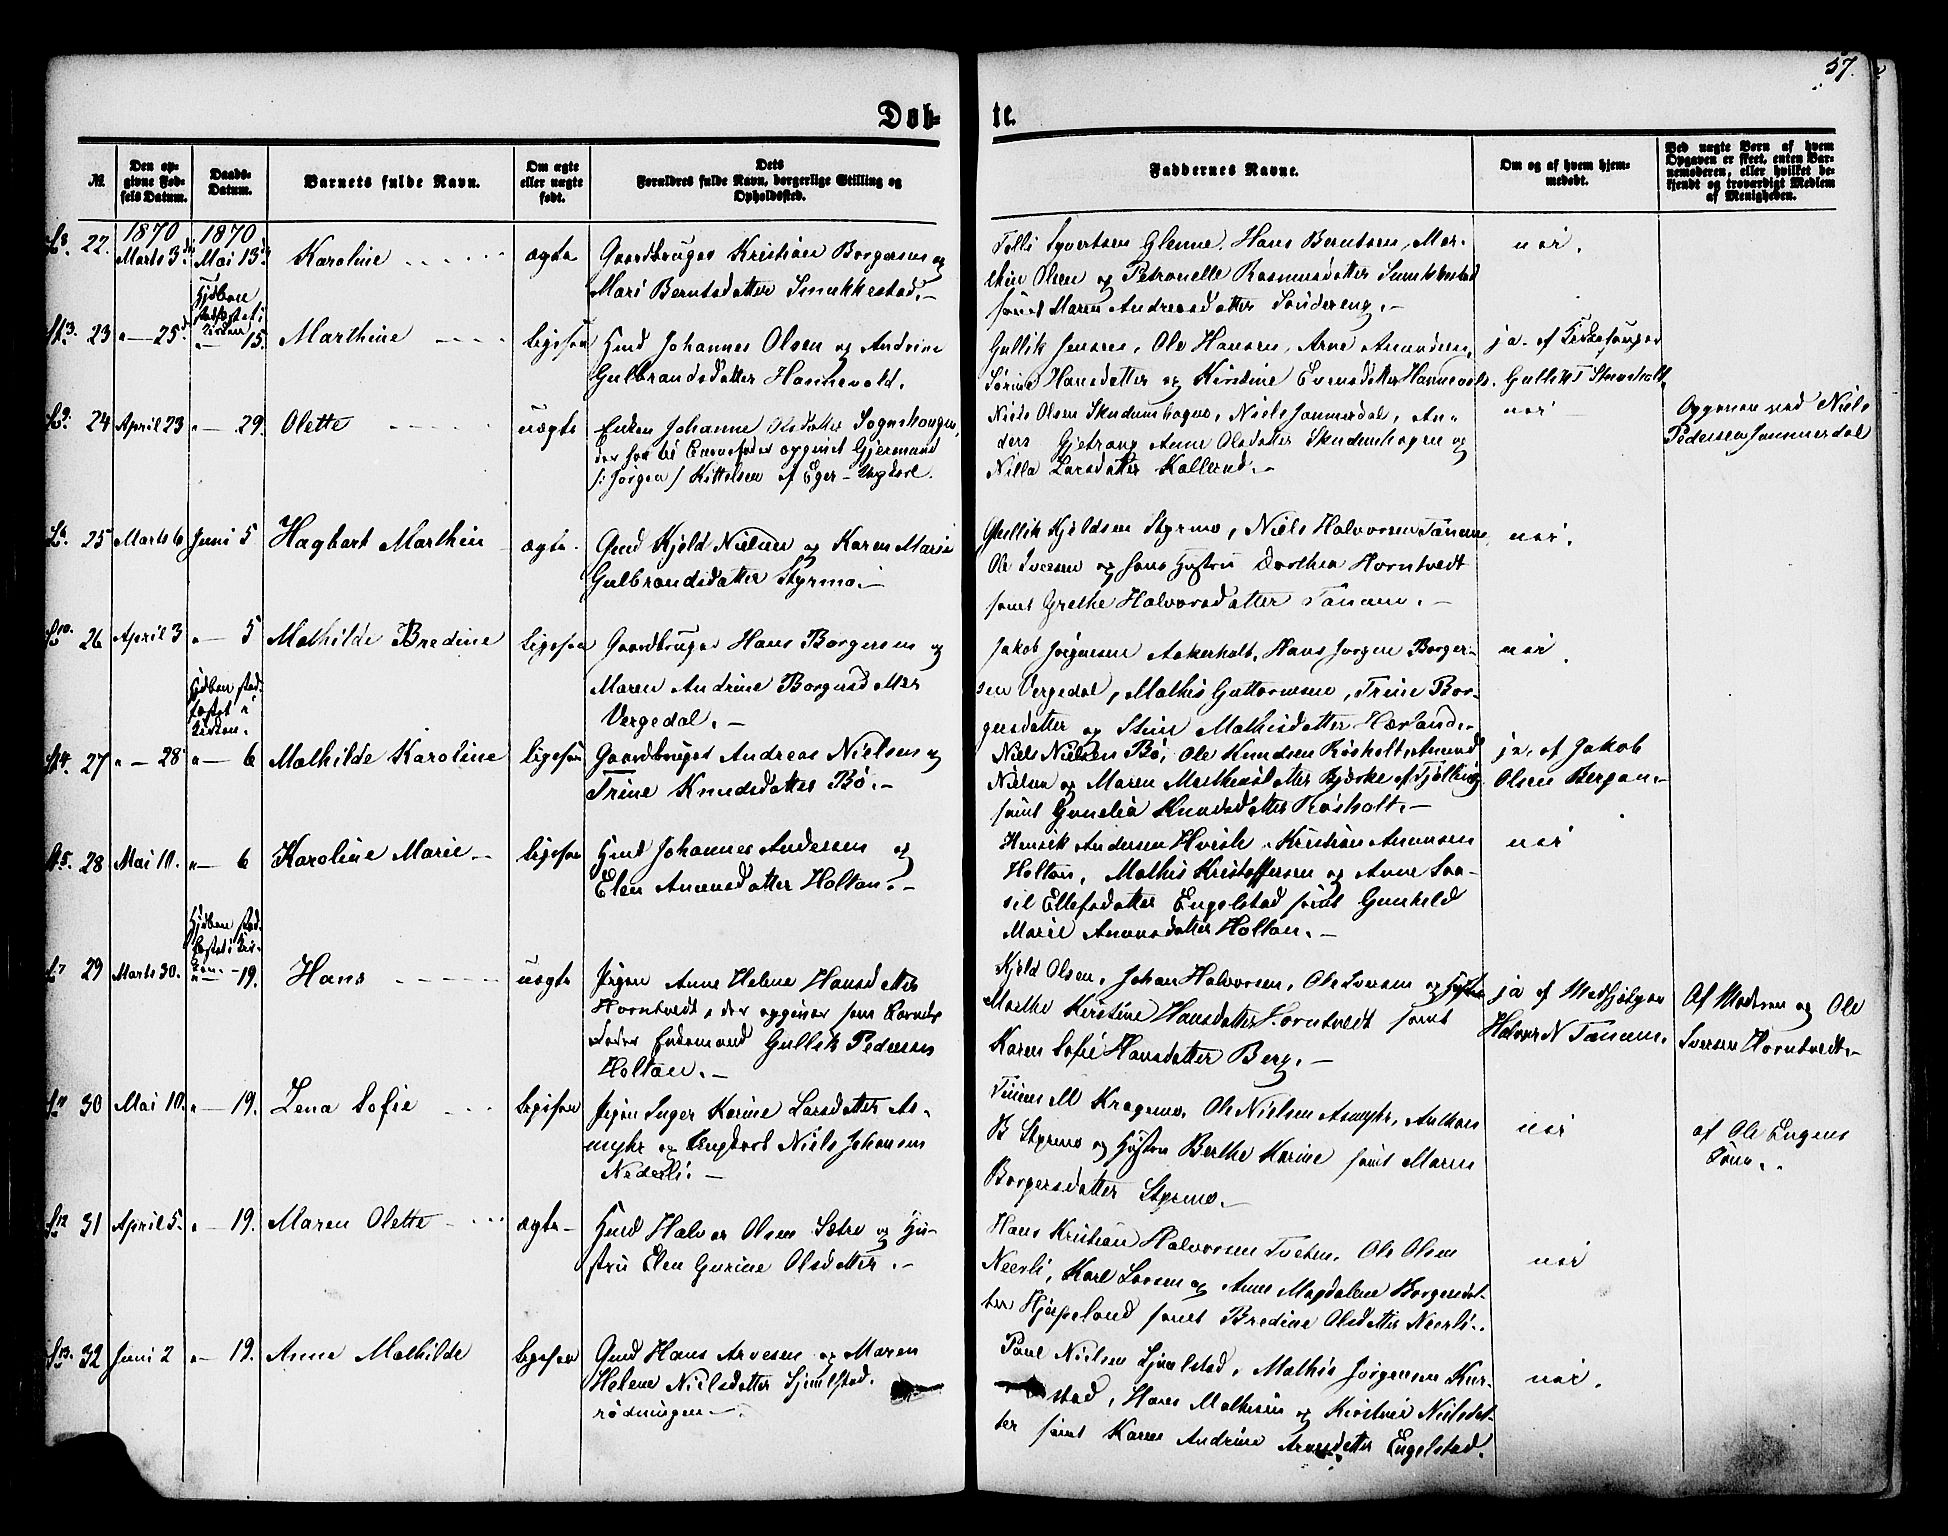 57.
Døb-
te.
№
Den op-
givne Fød-
sels Datum.
Daabs-
Datum.
Barnets fulde Navn.
Om ægte
eller uægte
født.
Dets
Forældres fulde Navn, borgerlige Stilling og
Opholdssted.
Faddernes Navne.
Om og af hvem hjem-
medøbt.
Ved uægte Børn af hvem
Opgaven er skeet, enten Bar-
nemoderen, eller hvilket be-
kjendt og troværdigt Medlem
af Menigheden.
1870 1870
22. Marts 3 Mai 13 Karoline ægte Gaardbruger Kristian Borgersen og
Mari Berntsdatter Smukkestad.-
Syvertsen Glenne. Hans Berntsen, Mar-
thin Olsen og Petronelle Rasmusdatter
samt Maren Andreasdatter Søndereng.-
nei.
Hjdben
stadfæstet i
Kirken
23 " - 25 " 15. Marthine ligesaa Hmd Johannes Olsen og Andrine
Gulbrandsdatter Hannevold.
Gullik Jensen, Ole Hansen, Arne Amundsen,
Sørine Hansdatter og Kirstine Evensdatter Hannevold.
ja. af Kirkesanger
Gullik T
24 April 23 " - 29. Olette uægte Enken Johanne Olsdatter
der har til Barnefader opgivet Gjermund
/: Jørgen / Kittelsen af Eger - Ungkarl.
Niels Olsen Skudenhagen, Niels Sommerdal, An-
ders Gjetrang Anne Olsdatter Skudenhagen og
Nilla Larsdatter Kollerud.-
nei
Opgaven ved Niels
Pedersen Sommerdal
25 Marts 6 Juni 5 Hagbart Marthin ægte. Gmd Kjeld Nielsen og Karen Marie
Gulbrandsdatter Styrmo.-
Gullik Kjeldsen Styrmo, Niels Halvorsen Tanem,
Ole Iversen og hans Hustru Dorthea Horntvedt
samt Grethe Halvorsdatter Tanem.-
nei.
26 April 3 " - 5 Mathilde Bredine ligesaa Gaardbruger Hans Borgersen og
Maren Andrine Borgersdatter
Vergedal.-
Jakob Jørgensen Askerholt, Hans Jørgen Borger-
sen Vergedal, Mathis Guttormsen, Trine Bor-
gersdatter og Stine Mathisdatter Hærland.-
nei.
Hjdben stad-
fæstet i
Kirken.
27 " - 28 " - 6 Mathilde Karoline ligesaa Gaardbruger Andreas Nielsen og
Trine Knudsdatter Bø.-
Niels Nielsen Bø, Ole Knudsen Røsholt, Amund
Nielsen og Maren Matheasdatter Bjerke af Tjølling
samt Gunelia Knudsdatter Røsholt.-
ja. af Jakob
Olsen Bergan.
28 Mai 10. " - 6 Karoline Marie ligesaa Hmd Johannes Andersen og
Elen Anansdatter Holtan.-
Henrik Andersen Hvisle, Kristian Anansen
Holtan, Mathis Kristoffersen og Anne Laa-
sil Ellefsdatter Engelstad samt Gunhild
Marie Anansdatter Holtan.-
nei
Hjdben stad-
fæstet i Kir-
ken.
29 Marts 30. " - 19. Hans uægte Pigen Anne Helene Hansdatter
Horntvedt, der opgiver som Barne-
fader Enkemand Gullik Pedersen
Holtan.-
Kjeld Olsen, Johan Halvorsen, Ole Iversen og Hustru
Marthe Kirstine Hansdatter Horntvedt samt
Karen Sofie Hansdatter Berg.-
ja af Medhjælper
Halvor N Tanem.
Af Moderen og Ole
Iversen Horntvedt.-
30 Mai 10. " - 19. Lena Sofie ligesaa Pigen Inger Karine Larsdatter As-
myhr og Ungkarl Niels Johansen
Nederli.-
M Kragemo, Ole Nielsen Asmyhr, Anthon
B Styrmo og Hustru Berthe Karine samt Maren
Borgersdatter Styrmo.-
nei
af Ole Engens
Kone.
31 April 5. " - 19. Maren Olette ægte- Hmd Halvor Olsen Sætre og Hu-
stru Elen Gurine Olsdatter.-
Hans Kristian Halvorsen Tveten, Ole Olsen
Neerli, Karl Larsen og Anne Magdalene Borgersdat-
ter Hjerpeland samt Bredine Olsdatter Neerli.
nei
32 Juni 2 " - 19. Anne Mathilde ligesaa Gmd Hans Arvesen og Maren
Helene Nielsdatter Sjuelstad.
rødningen-.
Paul Nielsen Sjuelstad, Mathis Jørgensen Kur-
stad, Hans Mathisen og Kirstine Nielsdat-
ter samt Karen Andrine Arvesdatter Engelstad.
nei.